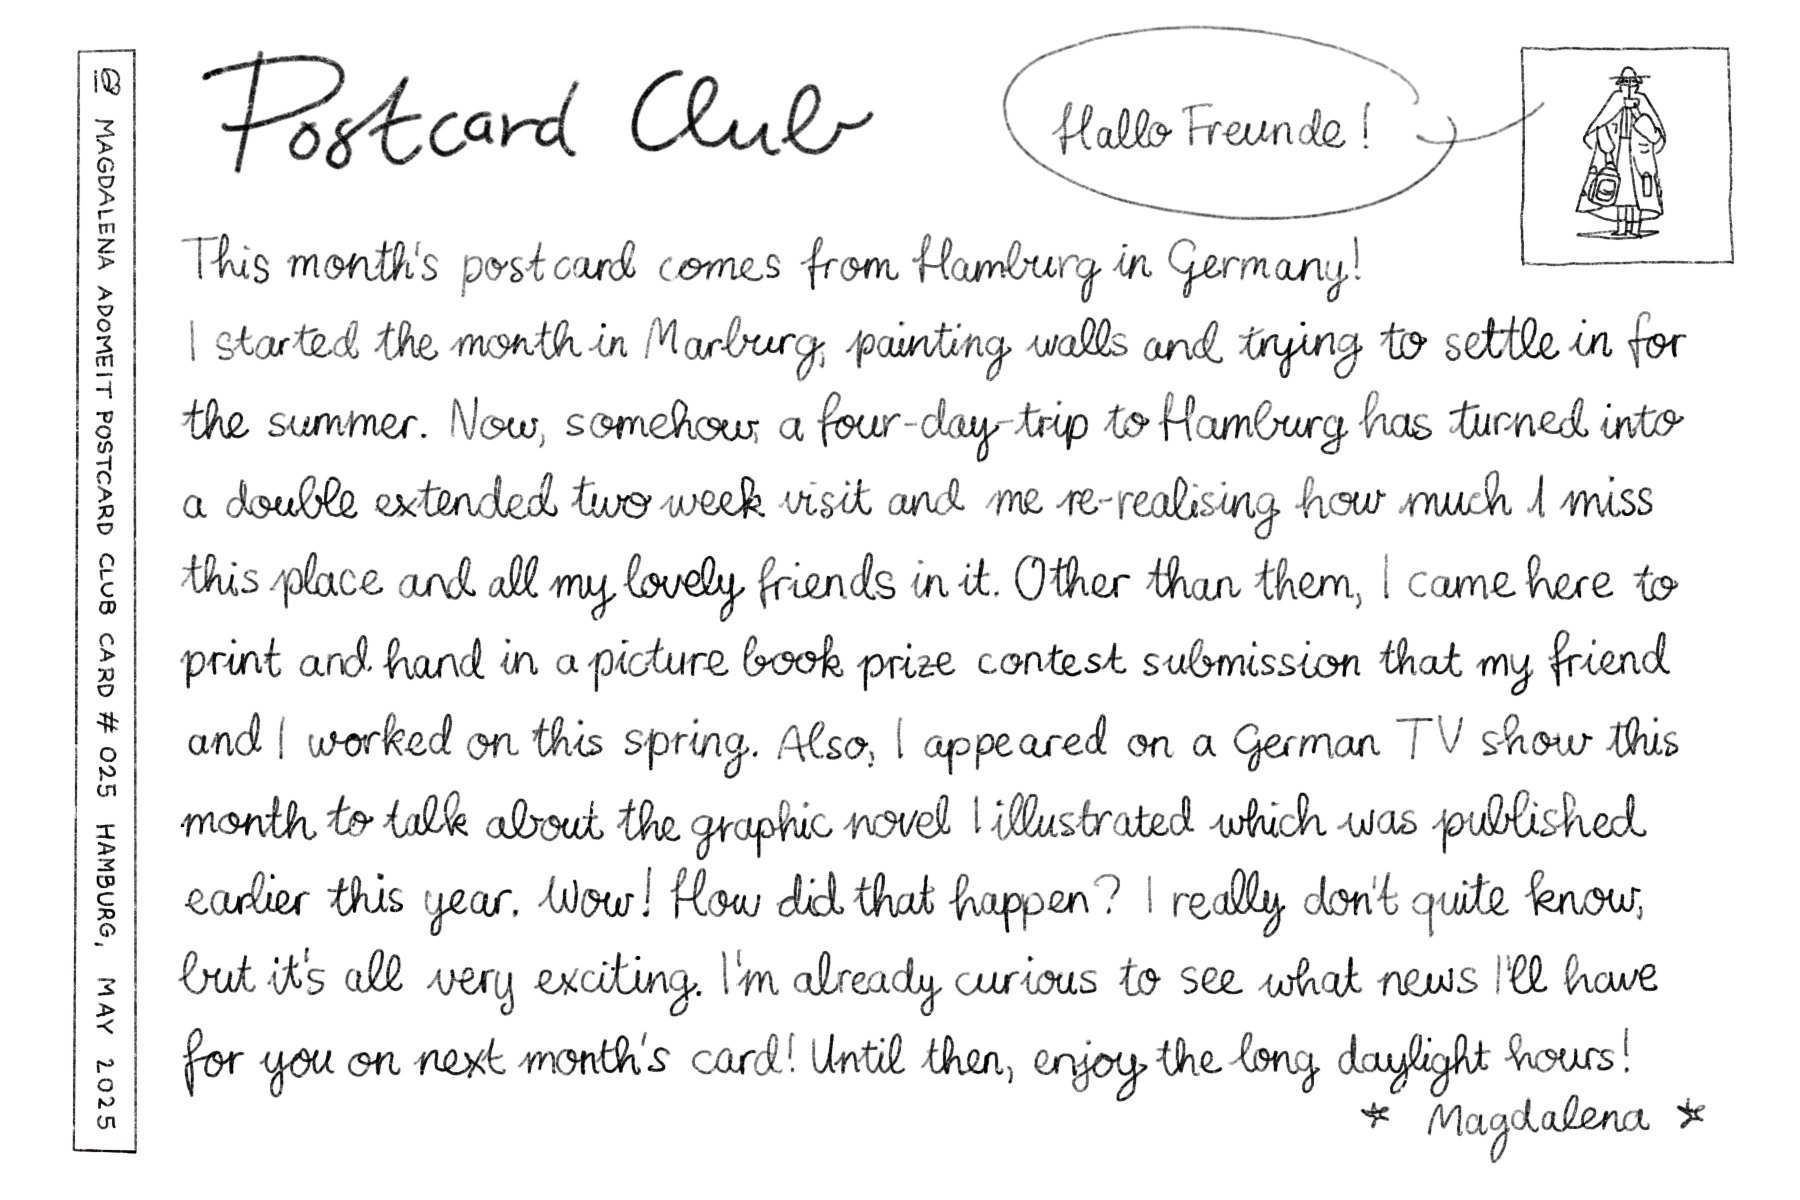 Postcard Club
Hallo Freunde!
This month's postcard comes from Hamburg in Germany!
I started the month in Marburg, painting walls and trying to settle in for
the summer. Now, somehow, a four-day-trip to Hamburg has turned into
a double extended two week visit and me re-realising how much I miss
this place and all my lovely friends in it. Other than them, I came here to
print and hand in a picture book prize contest submission that my friend
and I worked on this spring. Also, I appeared on a German TV show this
month to talk about the graphic novel I illustrated which was published
earlier this year. Wow! How did that happen? I really don't quite know,
but it's all very exciting. I'm already curious to see what news I'll have
for you on next month's card! Until then, enjoy the long daylight hours!
* Magdalena *
MAGDALENA ADOMEIT POSTCARD CLUB CARD # 025 HAMBURG, MAY 2025